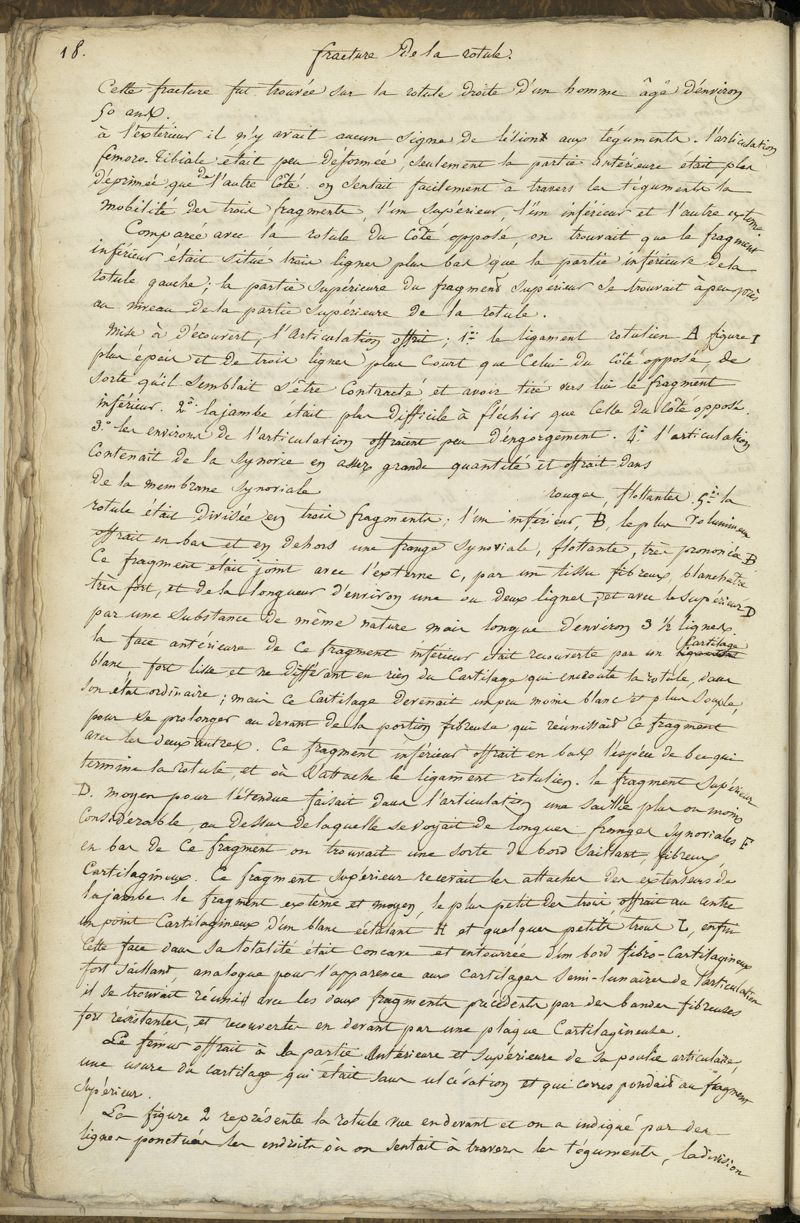 18.
fracture de la rotule.
Cette fracture fut trouvée sur la rotule droite d'un homme âgé d'environ
50 ans.
à l'extérieur il n'y avait aucun signe de lésion aux téguments. l'articulation
femoro-tibiale était peu déformée, seulement la partie antérieure était plus
déprimée que de l'autre côté. on sentait facilement à travers les téguments la
mobilité des trois fragments, l'un supérieur, l'un inférieur et l'autre externe.
Comparée avec la rotule du côté opposé, on trouvait que le fragment
inférieur était situé trois lignes plus bas que la partie inférieure de la
rotule gauche; la partie supérieure du fragment superieur se trouvait à peu près
au niveau de la partie supérieure de la rotule.
Mise à découvert, l'articulation offrit; 1º le ligament rotulien A figure 1
plus épais et de trois lignes plus court que celui du côté opposé, de
sorte qu'il semblait s'être contracté et avoir tiré vers lui le fragment
inférieur. 2º la jambe était plus difficile à fléchir que celle du côté opposé.
3.º les environs de l'articulation offraient peu d'engorgement. 4º l'articulation
contenait de la synovie en assez grande quantité et offrait dans
de la membrane synoviale rouges, flottantes. 5º la
rotule était divisée en trois fragments; l'un inférieur, B, le plus volumineux
offrait en bas et en dehors une frange synoviale, flottante, très prononcée B
Ce fragment était joint avec l'externe C, par un tissu fibreux, blanchâtre
très fort, et de la longueur d'environ une ou deux lignes, et avec le supérieur D
par une substance de même nature mais longue d'environ 3 ½ lignes.
la face antérieure de ce fragment inférieur était recouverte par un cartilage
blanc, fort lisse et ne différant en rien du cartilage qui encroute la rotule, dans
son état ordinaire; mais ce cartilage devenait un peu moins blanc et plus souple,
pour se prolonger au devant de la portion fibreuse qui réunissait ce fragment
avec les deux autres. Ce fragment inférieur offrait en bas l'espèce de bec qui
termine la rotule, et où s'attache le ligament rotulien. le fragment supérieur
D. moyen pour l'étendue faisait dans l'articulation une saillie plus ou moins
considérable, au dessus de laquelle se voyait de longues franges synoviales F
en bas de ce fragment on trouvait une sorte de bord saillant, fibreux,
cartilagineux. Ce fragment supérieur recevait les attaches des extenseurs de
la jambe. le fragment externe et moyen, le plus petit des trois offrait au centre
un point cartilagineux d'un blanc éclatant H et quelques petits trous I, enfin
cette face dans sa totalité était concave et entourée d'un bord fibro-cartilagineux
fort saillant, analogue pour l'apparence aux cartilages semi-lunaires de l'articulation
il se trouvait réuni avec les deux fragments précédents par des bandes fibreuses
fort résistantes, et recouvertes en devant par une plaque cartilagineuse.
Le fémur offrait à la partie antérieure et supérieure de sa poulie articulaire,
une usure du cartilage qui était sans ulcération et qui correspondait au fragment
supérieur.
La figure 2 représente la rotule vue en devant et on a indiqué par des
lignes ponctuées les endroits où on sentait à travers les téguments, la division